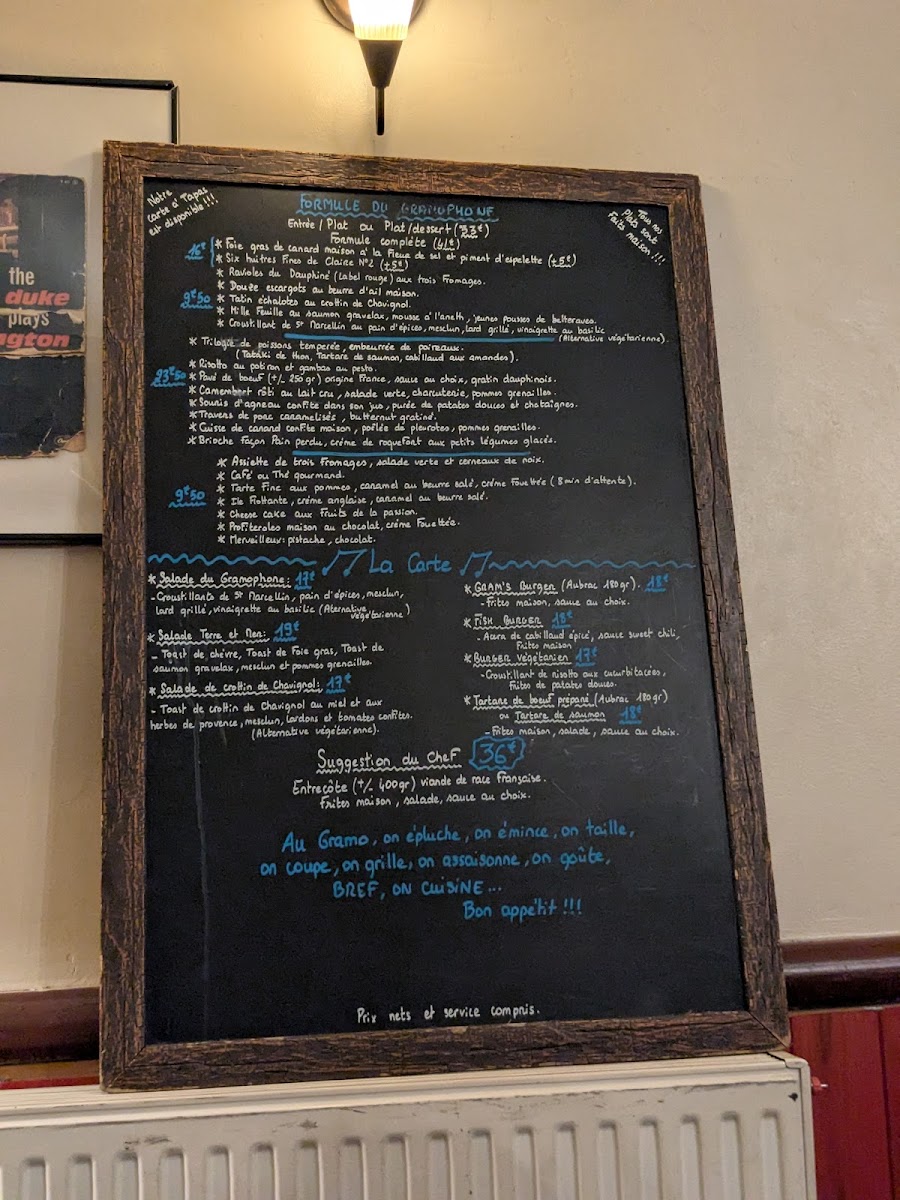 the
duke
plays
ngton
Notre
carte a' Tapas
est disponible !!!
FORMULE DU GRAMOPHONE
Tous nos
Plats sont
Faits maison !!!
Entrée / Plat ou Plat / dessert (33€)
Formule complète (41€)
16€
* Foie gras de canard maison à la Fleur de sel et piment d'espelette (+5€)
* Six huîtres Fines de Claire N°2 (+5€)
* Ravioles du Dauphiné (Label rouge) aux trois Fromages.
* Douze escargots au beurre d'ail maison.
9€50
* Tatin échalotes au crottin de Chavignol.
* Mille Feuille au saumon gravelax, mousse à l'aneth, jeunes pousses de betteraves.
* Croustillant de St Marcellin au pain d'épices, mesclun, lard grillé, vinaigrette au basilic
(Alternative végétarienne).
* Trilogie de poissons temperée, embeurrée de poireaux.
(Tataki de thon, Tartare de saumon, cabillaud aux amandes).
* Risotto au potiron et gambas au pesto.
23€50
* Pavé de boeuf (+/- 250 gr) origine France, sauce au choix, gratin dauphinois.
* Camembert rôti au lait cru, salade verte, charcuterie, pommes grenailles.
* Souris d'agneau confite dans son jus, purée de patates douces et chataignes.
* Travers de porc caramélisés, butternut gratiné.
* Cuisse de canard confite maison, poêlée de pleurotes, pommes grenailles.
* Brioche Façon Pain perdu, crème de roquefort aux petits légumes glacés.
* Assiette de trois Fromages, salade verte et cerneaux de noix.
* Café ou Thé gourmand.
* Tarte Fine aux pommes, caramel au beurre salé, crème Fouettée (8 min d'attente).
9€50
* Ile Flottante, crème anglaise, caramel au beurre salé.
* Cheese cake aux Fruits de la passion.
* Profiteroles maison au chocolat, crème Fouettée.
* Merveilleux: pistache, chocolat.
La Carte
* Salade du Gramophone: 17€
- Croustillants de St Marcellin, pain d'épices, mesclun,
lard grillé, vinaigrette au basilic (Alternative
végétarienne)
* Salade Terre et Mer: 19€
- Toast de chèvre, Toast de Foie gras, Toast de
saumon gravelax, mesclun et pommes grenailles.
* Salade de crottin de Chavignol: 17€
- Toast de crottin de Chavignol au miel et aux
herbes de provence, mesclun, lardons et tomates confites.
(Alternative végétarienne).
* GRAM'S Burger (Aubrac 180gr). 18€
- Frites maison, sauce au choix.
* FISH BURGER 18€
- Acura de cabillaud épicé, sauce sweet chili,
Frites maison
* Burger végétarien 17€
- Croustillant de risotto aux cucurbitacées,
Frites de patates douces.
* Tartare de boeuf préparé (Aubrac 180gr)
ou Tartare de saumon 18€
- Frites maison, salade, sauce au choix.
Suggestion du Chef 36€
Entrecôte (+/- 400gr) viande de race Française.
Frites maison, salade, sauce au choix.
Au Gramo, on épluche, on émince, on taille,
on coupe, on grille, on assaisonne, on goûte,
BREF, ON CUISINE...
Bon appétit !!!
Prix nets et service compris.